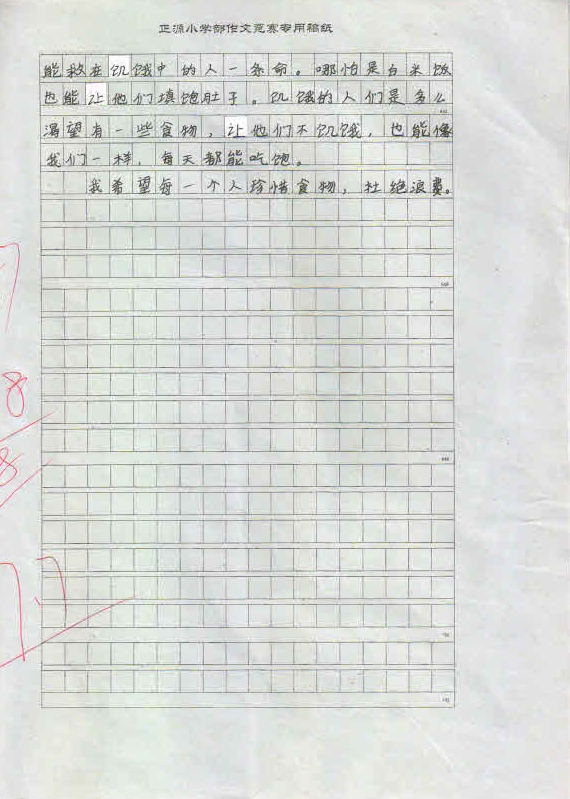 正源小学部作文竞赛专用稿纸
能救在饥饿中的人一条命。哪怕是白米饭
也能让他们填饱肚子。饥饿的人们是多么
渴望有一些食物，让他们不饥饿，也能像
我们一样，每天都能吃饱。
我希望每一个人珍惜食物，杜绝浪费。